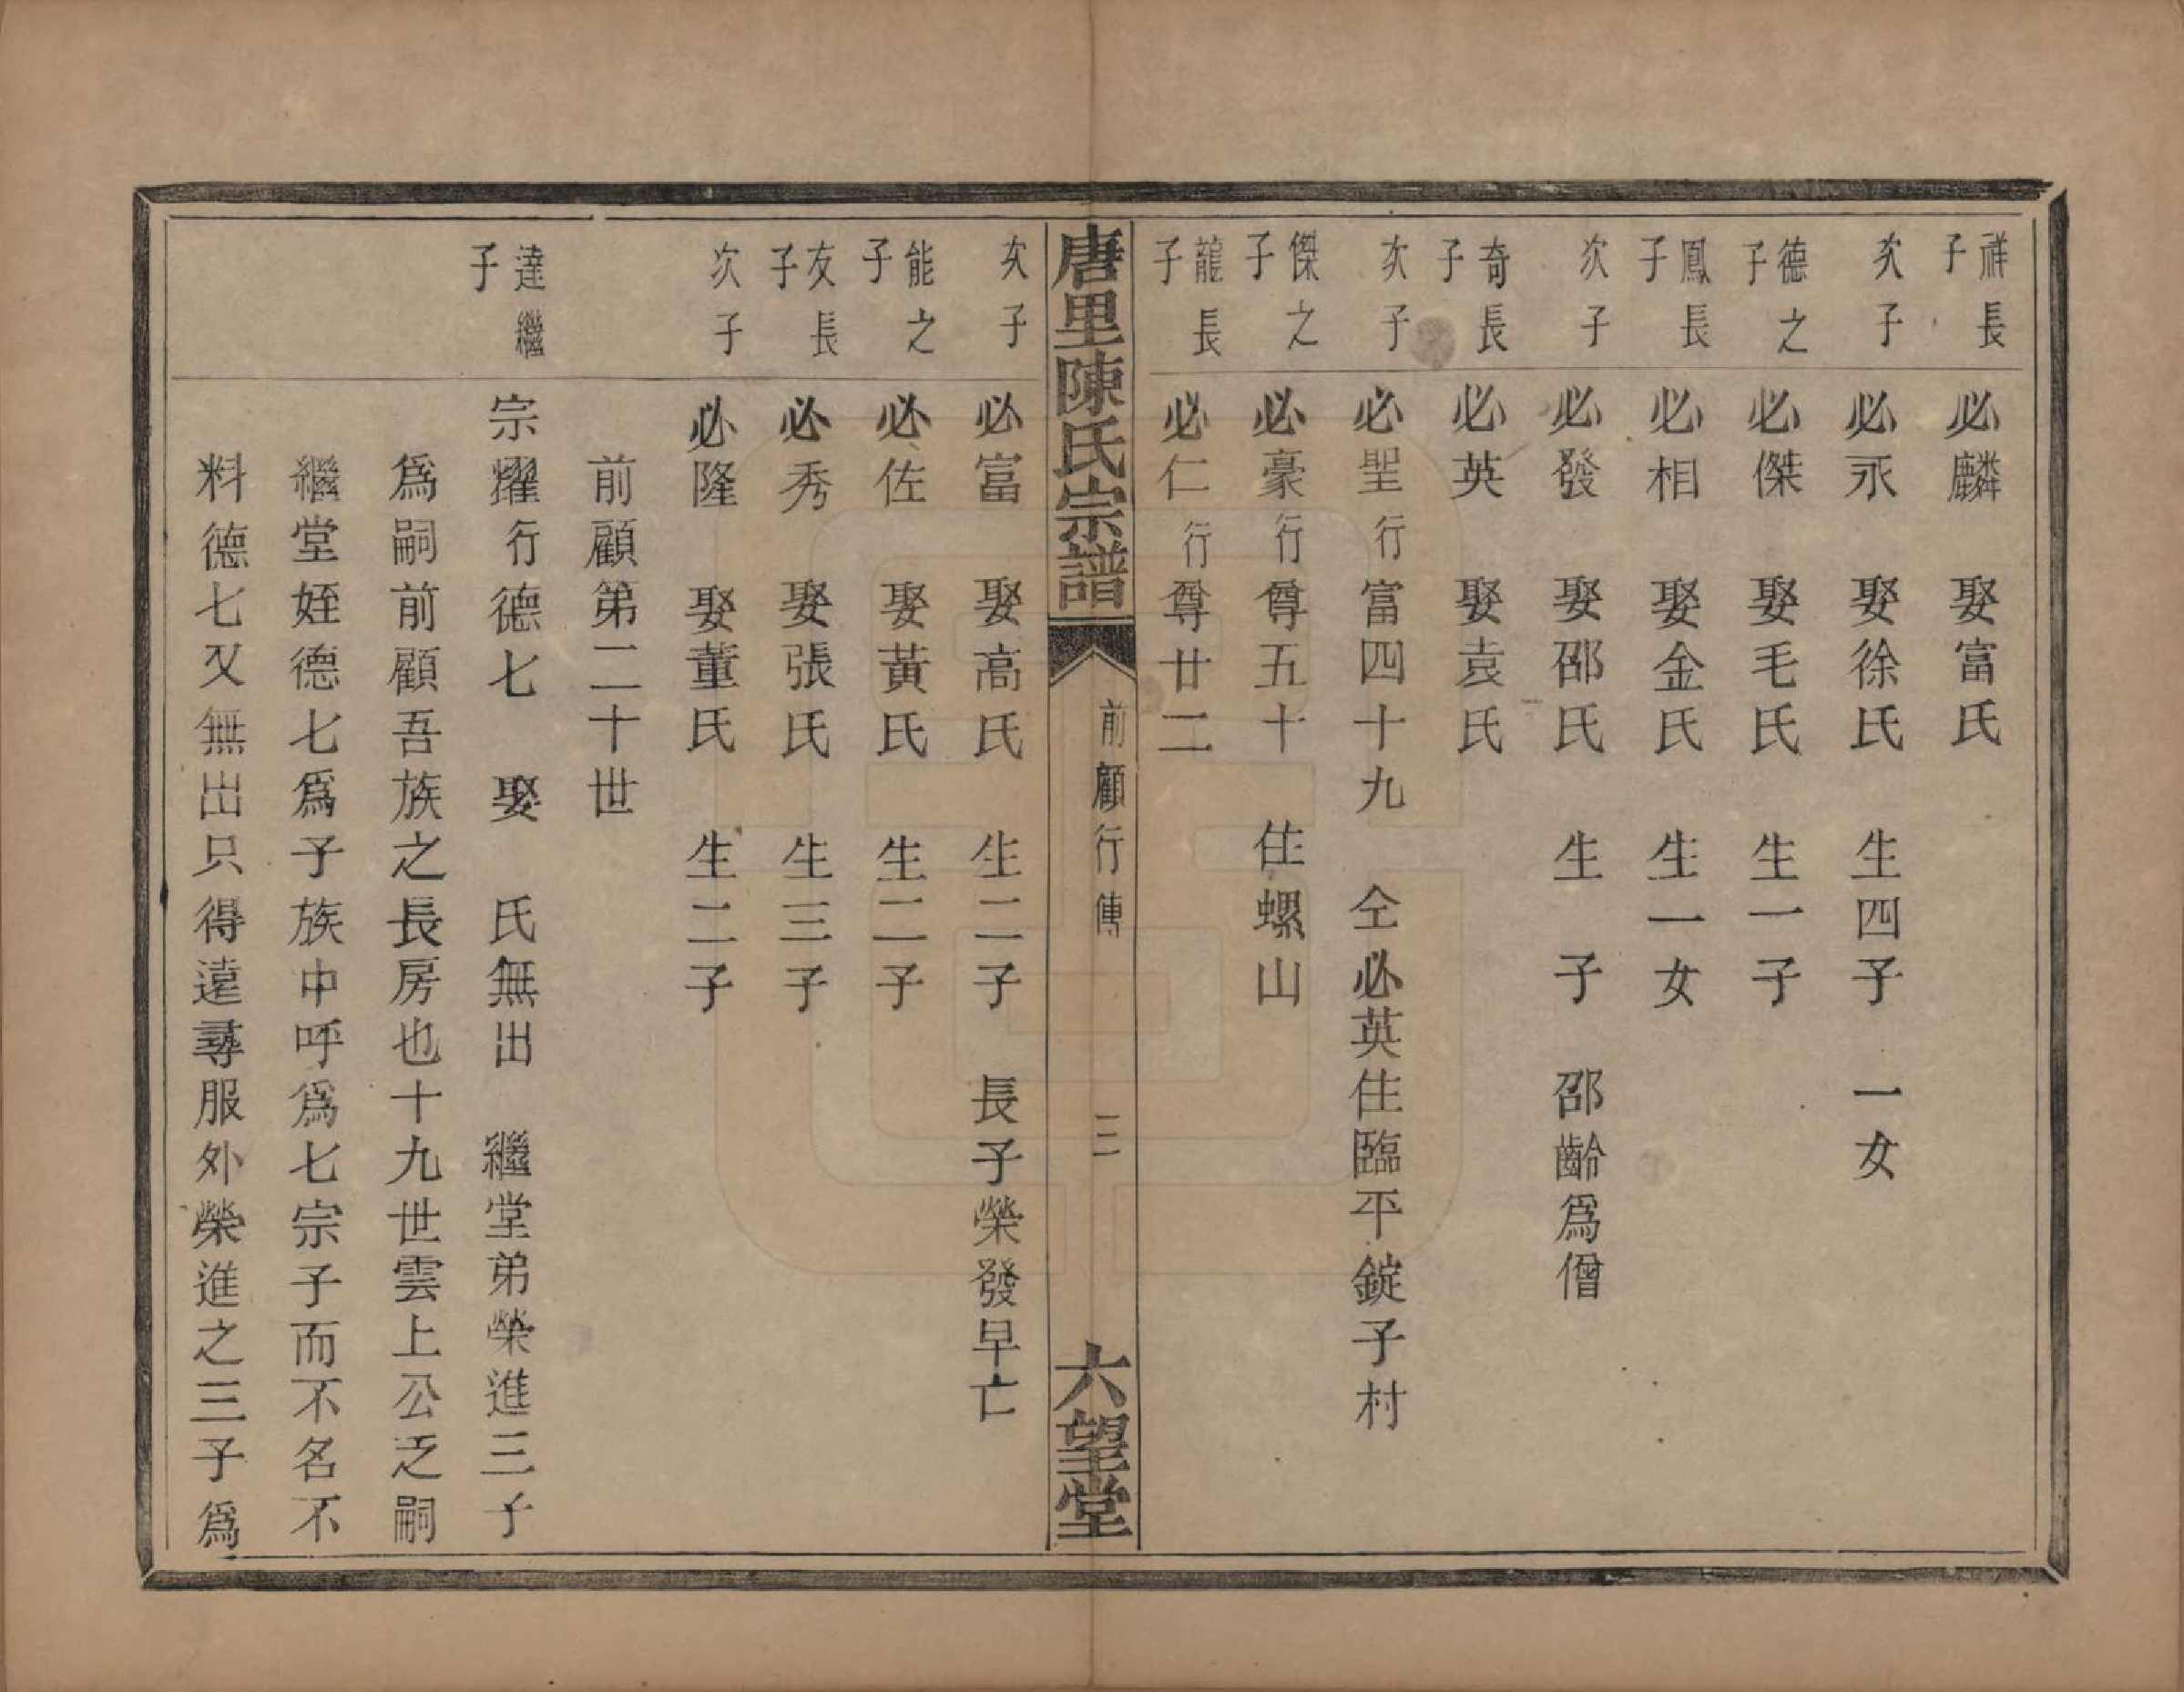 祥長子 必麟 娶富氏
次子 必永 娶徐氏 生四子 一女
德之子 必傑 娶毛氏 生一子
鳳長子 必相 娶金氏 生一女
次子 必發 娶邵氏 生 子 邵齡爲僧
奇長子 必英 娶袁氏
次子 必聖行富四十九 仝必英住臨平錠子村
傑之子 必豪行尊五十 住螺山
龍長子 必仁行尊廿二
唐里陳氏宗譜 前顧行傳 三 六望堂
次子 必富 娶高氏 生二子 長子榮發早亡
能之子 必佐 娶黃氏 生二子
友長子 必秀 娶張氏 生三子
次子 必隆 娶董氏 生二子
前顧第二十世
達繼子 宗燿行德七 娶 氏無出 繼堂弟榮進三子
爲嗣前顧吾族之長房也十九世雲上公乏嗣
繼堂姪德七爲子族中呼爲七宗子而不名不
料德七又無出只得遠尋服外榮進之三子爲